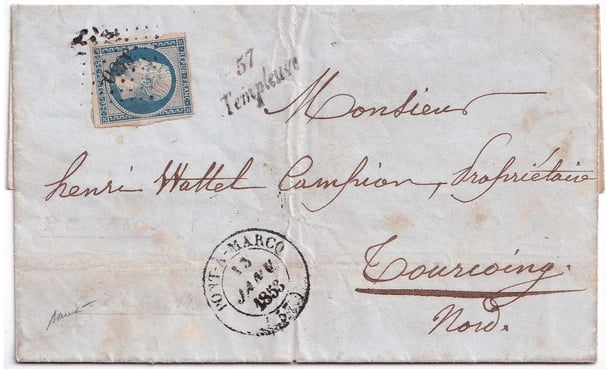 57
Templeuve
Monsieur
henri Wattel Campion, Propriétaire
Tourcoing.
Nord.
PONT-A-MARCQ
13
JANV
1853
(57)